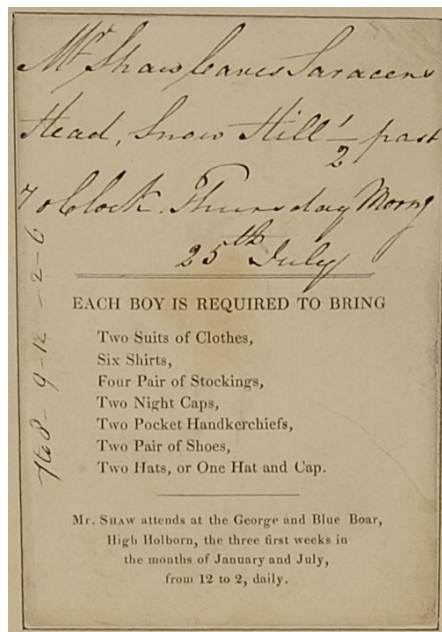 Mr Shaw leaves Saracens
Head, Snow Hill 1/2 past
7 oClock. Thursday Morng
25th July
EACH BOY IS REQUIRED TO BRING
Two Suits of Clothes,
Six Shirts,
Four Pair of Stockings,
Two Night Caps,
Two Pocket Handkerchiefs,
Two Pair of Shoes,
Two Hats, or One Hat and Cap.
Mr. Shaw attends at the George and Blue Boar,
High Holborn, the three first weeks in
the months of January and July,
from 12 to 2, daily.